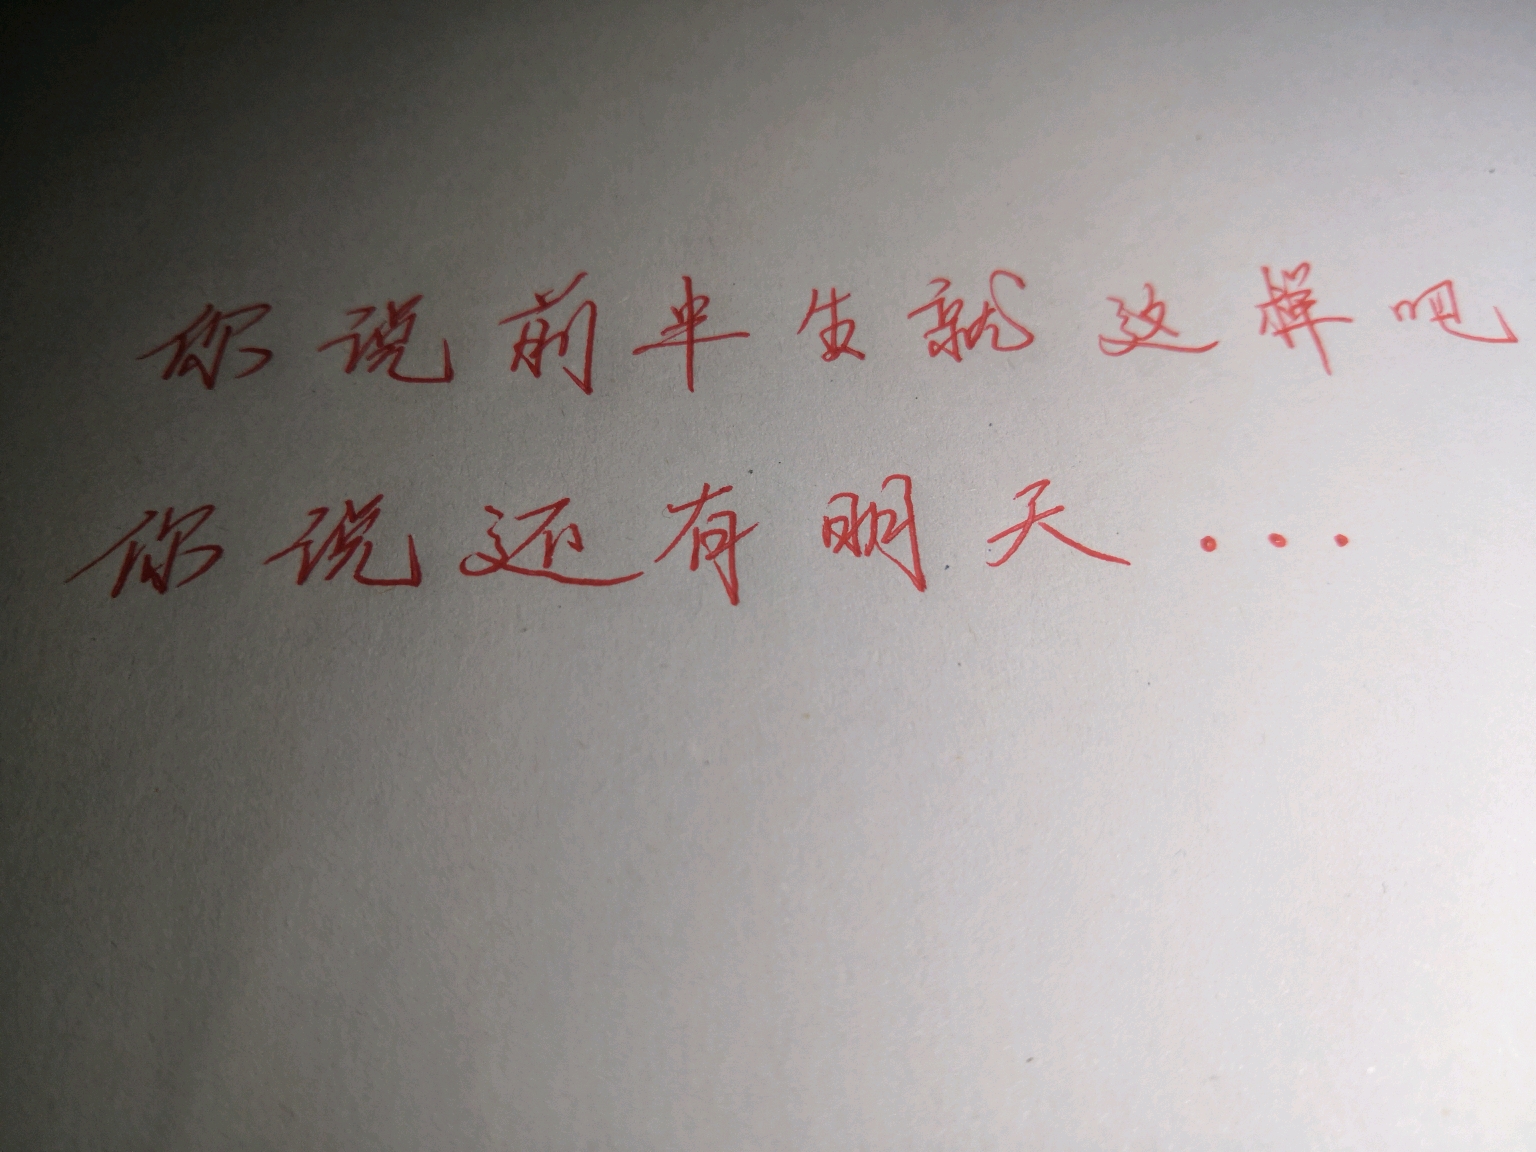 你说前半生就这样吧
你说还有明天...